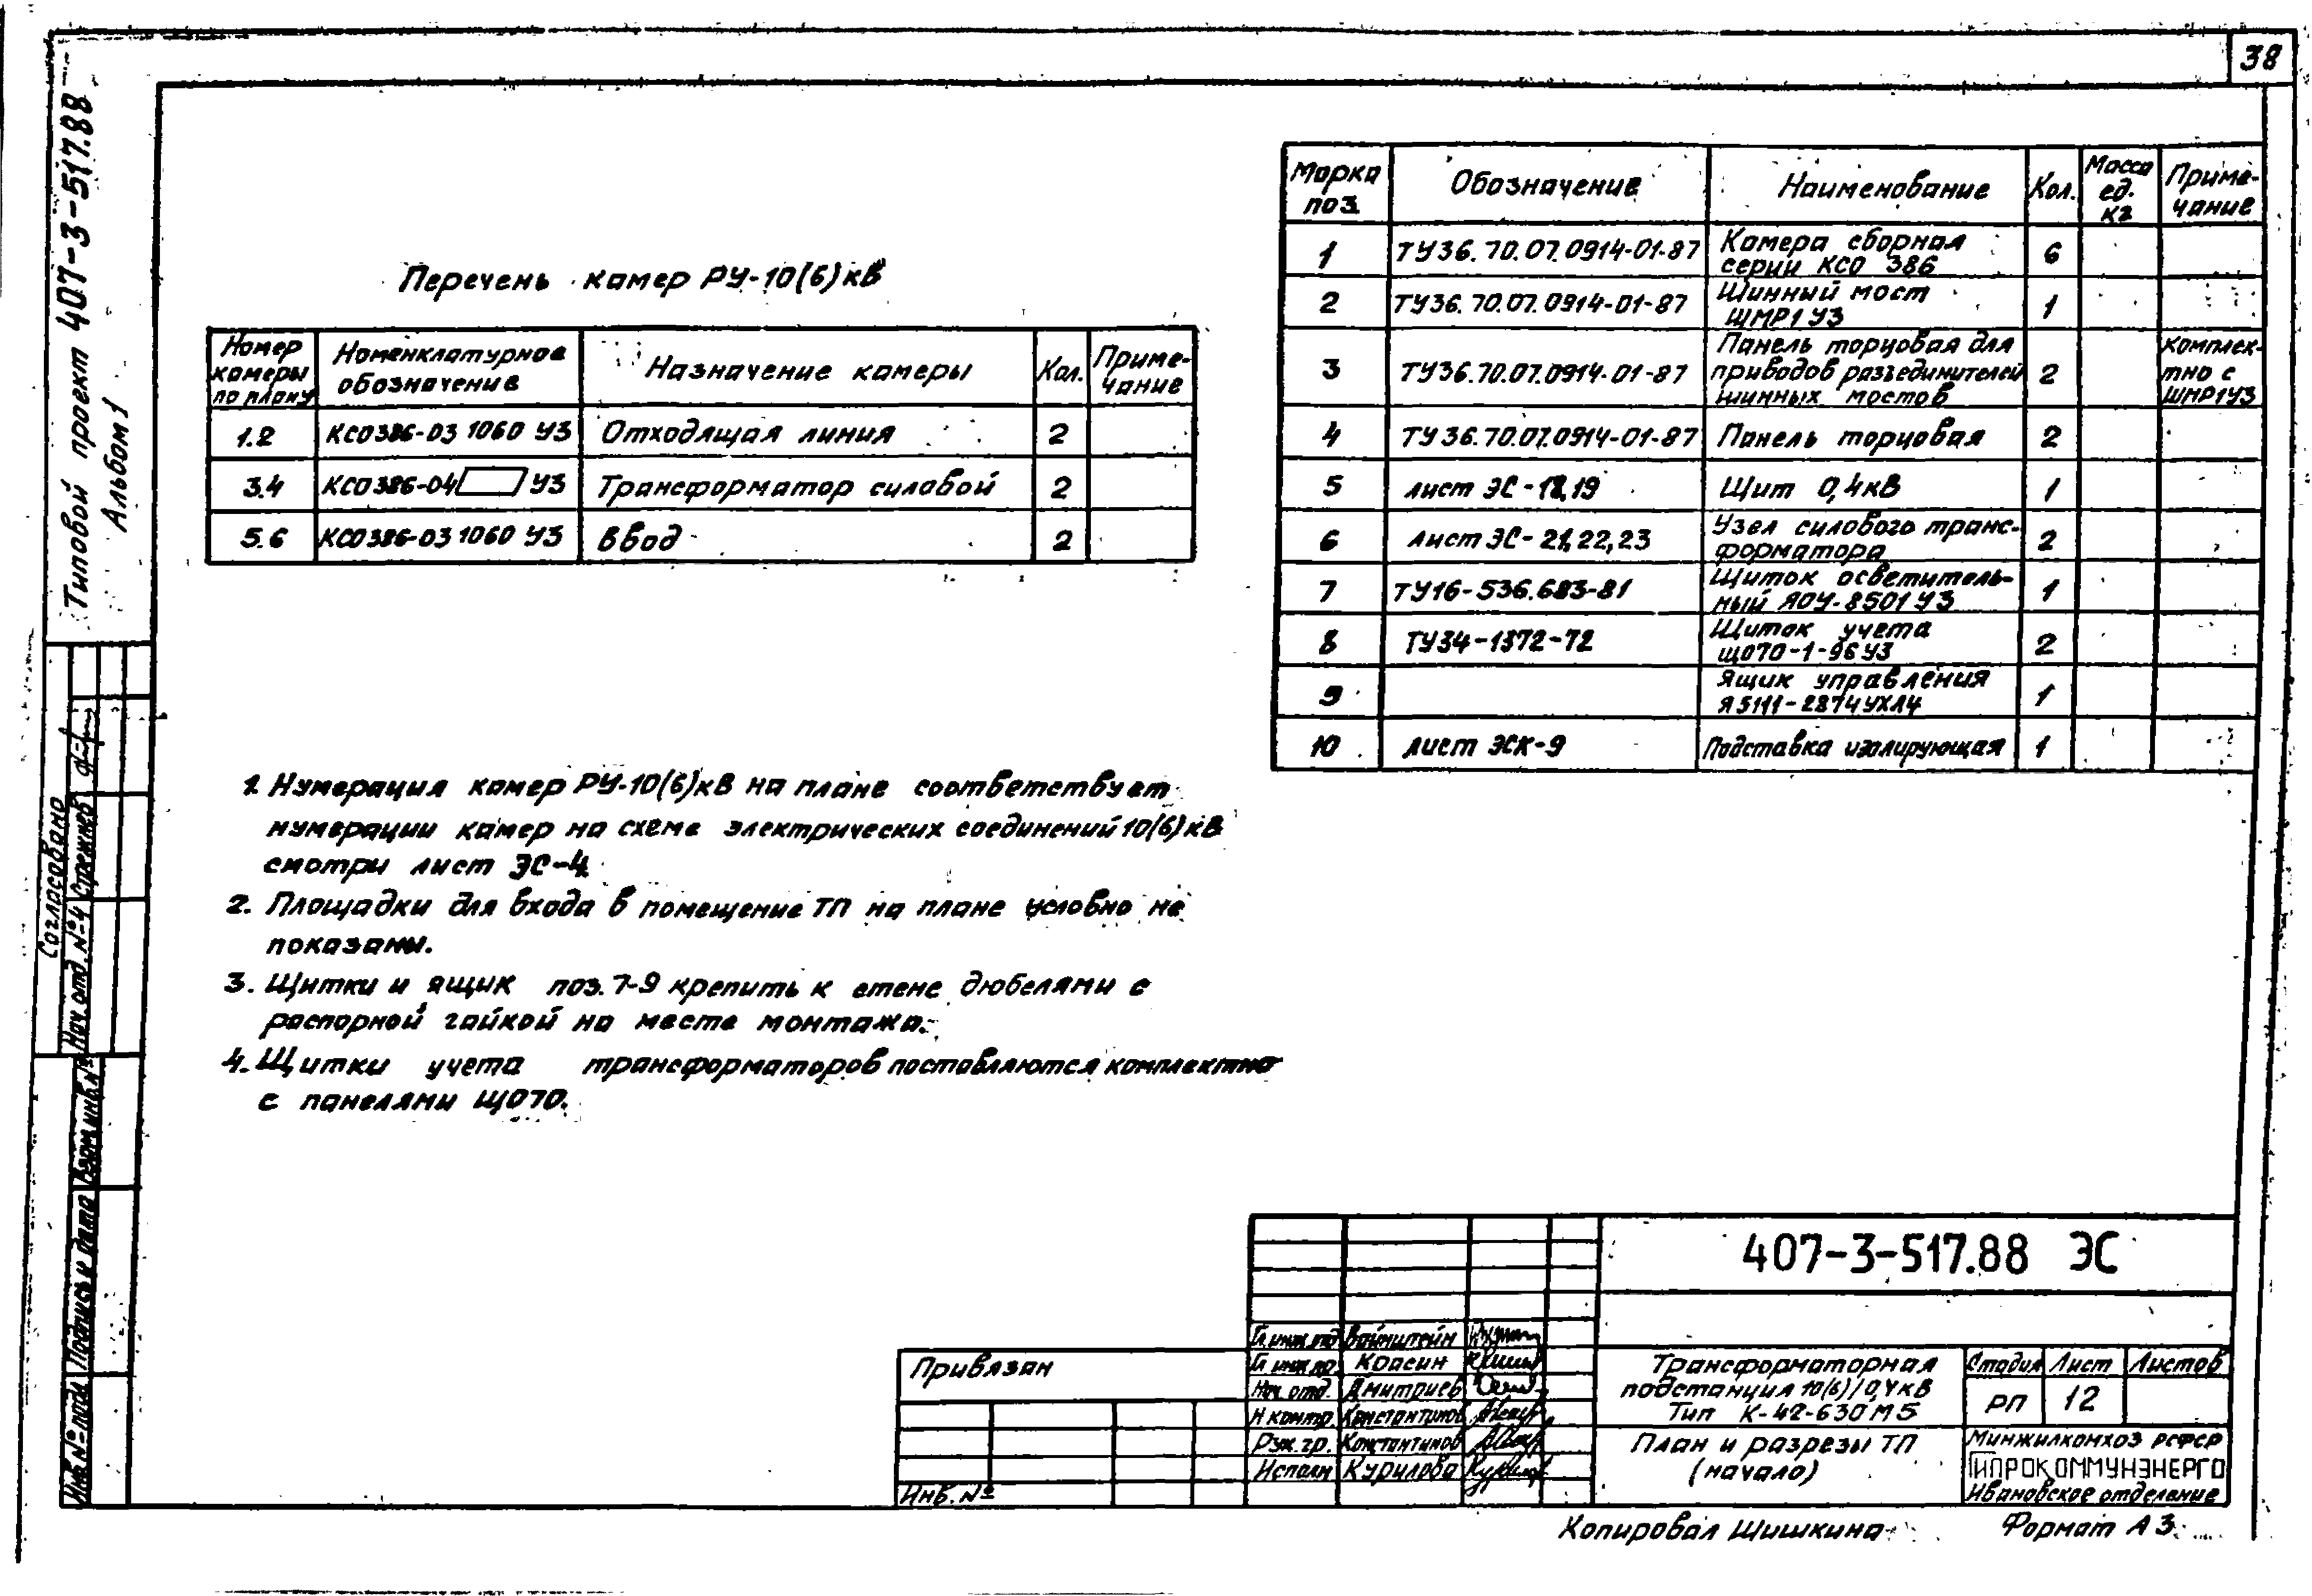 38
Типовой проект 407-3-517.88
Альбом 1
Перечень камер РУ-10(6)кВ
Номер камеры по плану
Номенклатурное обозначение
Назначение камеры
Кол.
Примечание
1.2 КСО386-03 1060 У3 Отходящая линия 2
3.4 КСО386-04 У3 Трансформатор силовой 2
5.6 КСО386-03 1060 У3 Ввод 2
Марка поз.
Обозначение
Наименование
Кол.
Масса ед. кг
Приме-
чание
1 ТУ36.70.07.0914-01-87 Камера сборная
серии КСО 386 6
2 ТУ36.70.07.0914-01-87 Шинный мост
ШМР1 У3 1
3 ТУ36.70.07.0914-01-87 Панель торцовая для
приводов разъединителей
шинных мостов 2 комплек-
тно с
ШМР1У3
4 ТУ36.70.07.0914-01-87 Панель торцовая 2
5 лист ЭС-18,19 Щит 0,4кВ 1
6 лист ЭС-21,22,23 Узел силового транс-
форматора 2
7 ТУ16-536.683-81 Щиток осветитель-
ный ЯОУ-8501 У3 1
8 ТУ34-1372-72 Щиток учета
ЩО70-1-96 У3 2
9 Ящик управления
Я5111-2874УХЛ4 1
10 лист ЭСК-9 Подставка изолирующая 1
1. Нумерация камер РУ-10(6)кВ на плане соответствует
нумерации камер на схеме электрических соединений 10(6)кВ
смотри лист ЭС-4
2. Площадки для входа в помещение ТП на плане условно не
показаны.
3. Щитки и ящик поз. 7-9 крепить к стене дюбелями с
распорной гайкой на месте монтажа.
4. Щитки учета трансформаторов поставляются комплектно
с панелями ЩО70.
Согласовано
Нач. отд. №4 Стрежнев
Взам.инв.№
Подпись и дата
Инв.№подл
Привязан
Инв. №
407-3-517.88 ЭС
Гл инж отд Вайнштейн
Гл инж пр. Красин
Нач. отд. Дмитриев
Н контр. Константинов
Рук. гр. Константинов
Исполн Курилова
Трансформаторная
подстанция 10(6)/0,4кВ
Тип К-42-630М5
Стадия Лист Листов
РП 12
План и разрезы ТП
(начало)
Минжилкомхоз РСФСР
ГИПРОКОММУНЭНЕРГО
Ивановское отделение
Копировал Шишкина
Формат А3